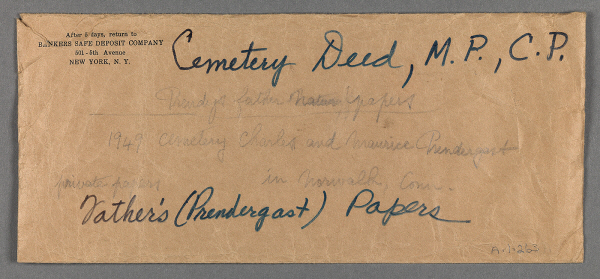 After 5 days, return to
BANKERS SAFE DEPOSIT COMPANY
501 - 5th Avenue
NEW YORK, N. Y.
Cemetery Deed, M.P., C.P.
father papers
1949 cemetery Charles and Maurice Prendergast
private papers in Norwalk, Conn.
Father's (Prendergast) Papers